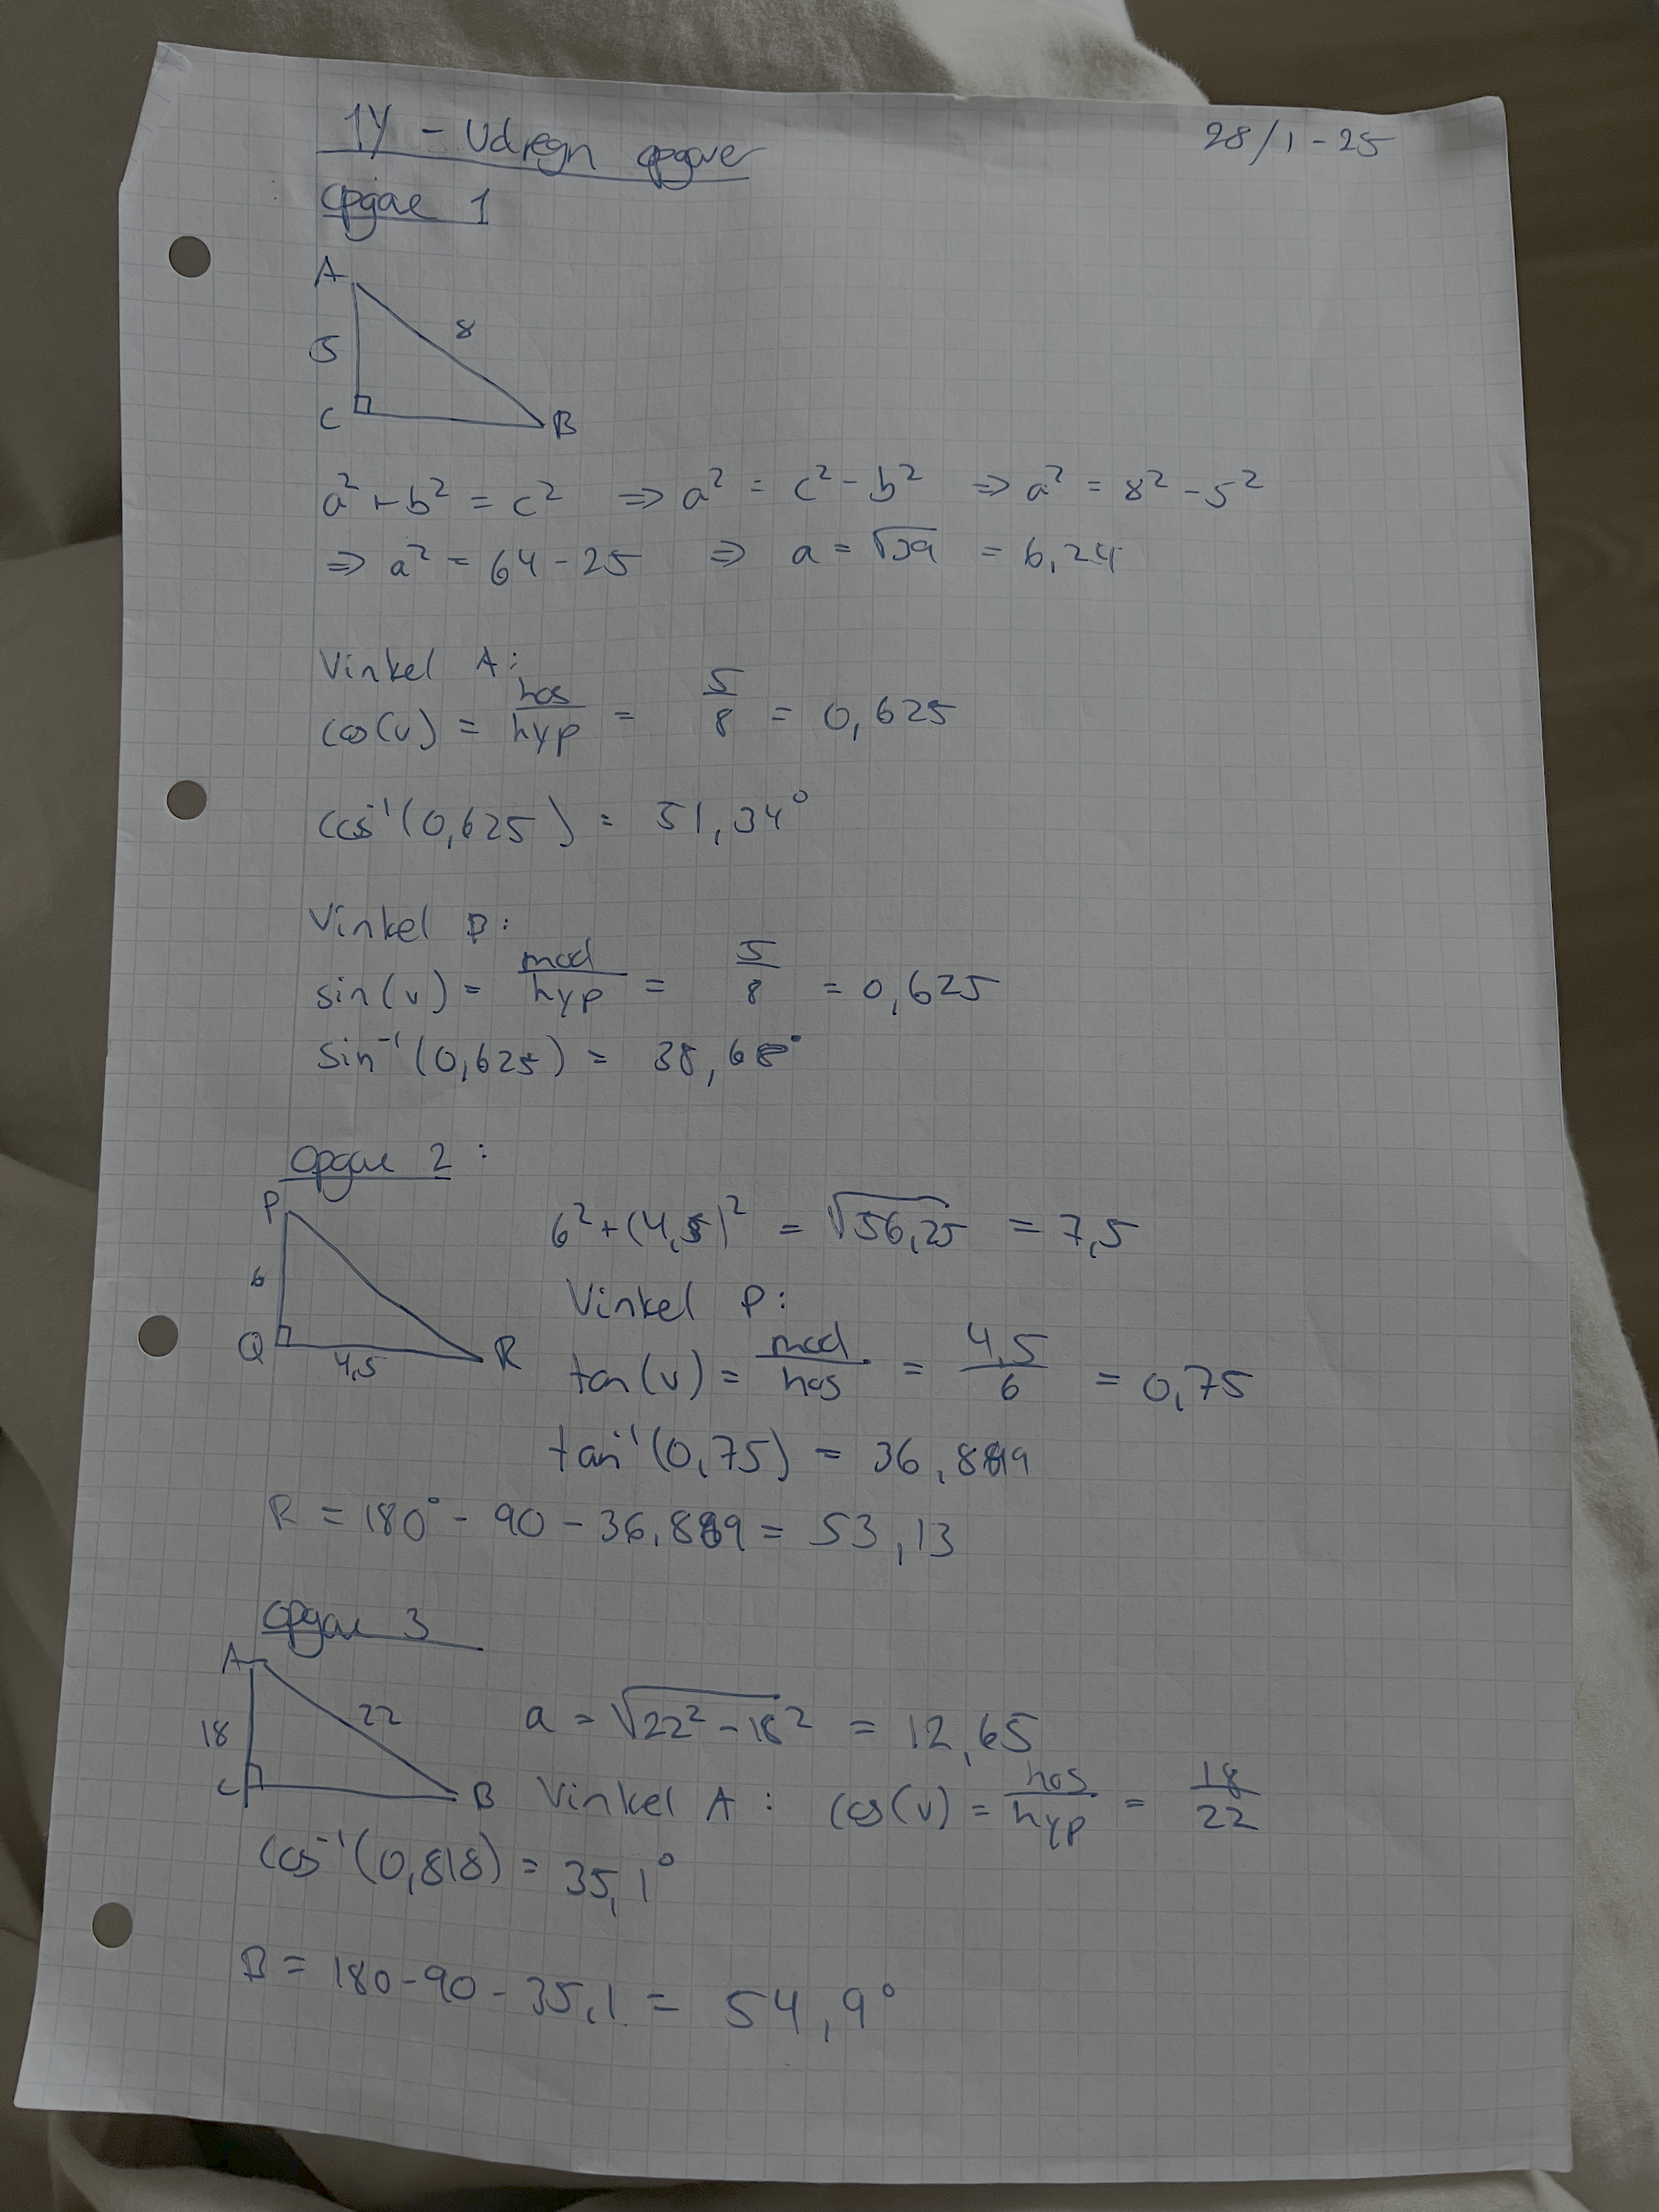 1Y - Udregn opgave
28/1-25
opgave 1
A
8
5
C
B
a² + b² = c² ⇒ a² = c² - b² ⇒ a² = 8² - 5²
⇒ a² = 64 - 25 ⇒ a = √39 = 6,24
Vinkel A:
cos(v) = hos/hyp = 5/8 = 0,625
cos⁻¹(0,625) = 51,34°
Vinkel B:
sin(v) = mod/hyp = 5/8 = 0,625
sin⁻¹(0,625) = 38,68°
opgave 2:
P
6
Q
4,5
R
6² + (4,5)² = √56,25 = 7,5
Vinkel P:
tan(v) = mod/hos = 4,5/6 = 0,75
tan⁻¹(0,75) = 36,889
R = 180° - 90 - 36,889 = 53,13
opgave 3
A
22
18
C
B
a = √22² - 18² = 12,65
Vinkel A: cos(v) = hos/hyp = 18/22
cos⁻¹(0,818) = 35,1°
B = 180 - 90 - 35,1 = 54,9°